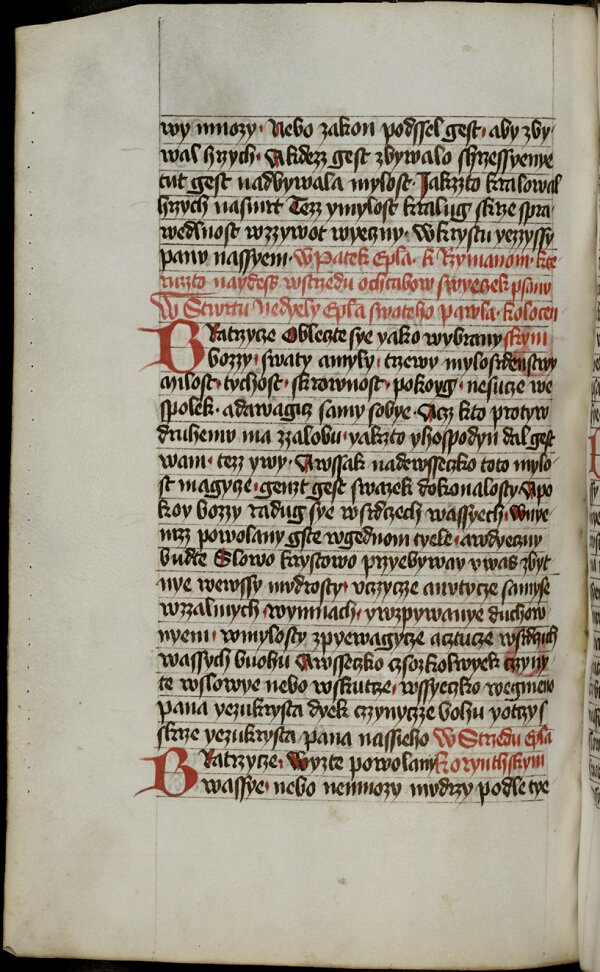 wy mnozy · Nebo zakon podssel gest · aby zby
wal hrzych · Akdezz gest zbywalo shrzessyenye
tut gest nadbywala mylost · Jakzto kralowal
hrzych nasmrt Tezz ymylost kralug skrze spra
wedlnost wzzywot wyeczny · Wkrystu yezzyssy
panu nassyem · W Patek Epla · k Rzymanom · kte
ruzto naydess wstrzedu ochtabow swyeczek psanu
W Stwrtu Nedyely Epla swateho pawla · kolocen
Bratrzycze Obleczte sye yako wybrany skym
bozzy · swaty amyly · trzewy mylosrdenstwy
amlost · tychost · skrownost · pokoyg · nesucze we
spolek · adawagicz samy sobye · Acz kto protyw
druhemu ma zzalobu · yakzto yhospodyn dal gest
wam · tezz ywy · Awssak nadewsseczko toto mylo
st magycze · genzt gest swazek dokonalosty · Apo
koy bozzy radug sye wsrdczech wassyech · Wnye
mzz powolany gste wgednom tyele · awdyeczny
budte Slowo krystowo przyebyway uwas zbyt
nye wewssy mudrosty · uczycze anutycze samyse
wzzalmych · wymnach · ywzpywanye duchow
nyem · wmylosty zpyewagycze acztucze wsrdczich
wassych buohu Awsseczko czsozkolwyek czyny
te wslowye nebo wskutcze · wssyeczko wegmeno
pana yezukrysta dyek czynyczze bohu yotczy s
skrze yezukrysta pana nassieho W Strzedu Epla
Bratrzycze · Wyzte powolany Korynthskym
wassye · nebo nemnozy mudrzy podle tye